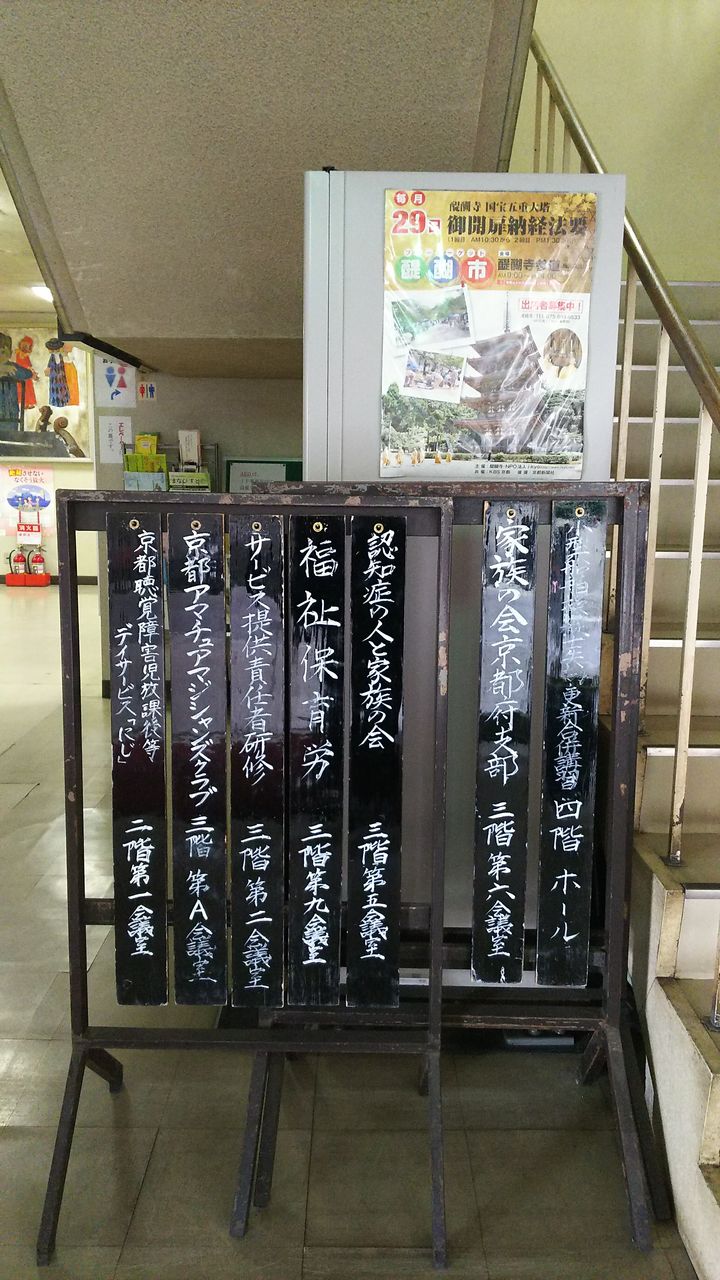 毎月
29日
醍醐寺 国宝五重大塔
御開扉納経法要
フリーマーケット
醍醐市
醍醐寺参道
出店者募集中!
更新合併講習 四階 ホール
家族の会京都府支部 三階第六会議室
認知症の人と家族の会 三階第五会議室
福祉保育労 三階第九会議室
サービス提供責任者研修 三階第二会議室
京都アマチュアマジシャンズクラブ 三階第A会議室
京都聴覚障害児放課後等
デイサービス「にじ」 二階第一会議室
消火器